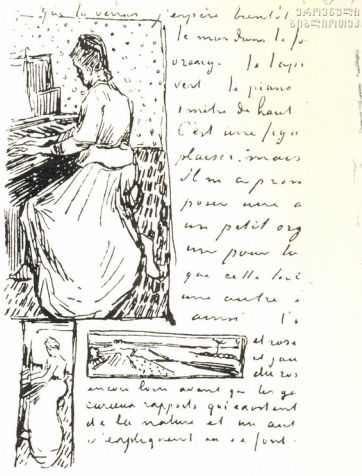 que tu verras j'espère bientôt
ეროვნული
ბიბლიოთეკა
le mur dans le fo
orangé. le tapi
vert le piano
1 mètre de haut
C'est une figu
plaisir mais
il m a prom
poser une a
un petit org
un pour to
que cette toi
une autre
ainsi
et rose
et jau
du ros
encore loin avant que les ge
curieux rapports qui existent
de la nature et un autre
s'expliquent